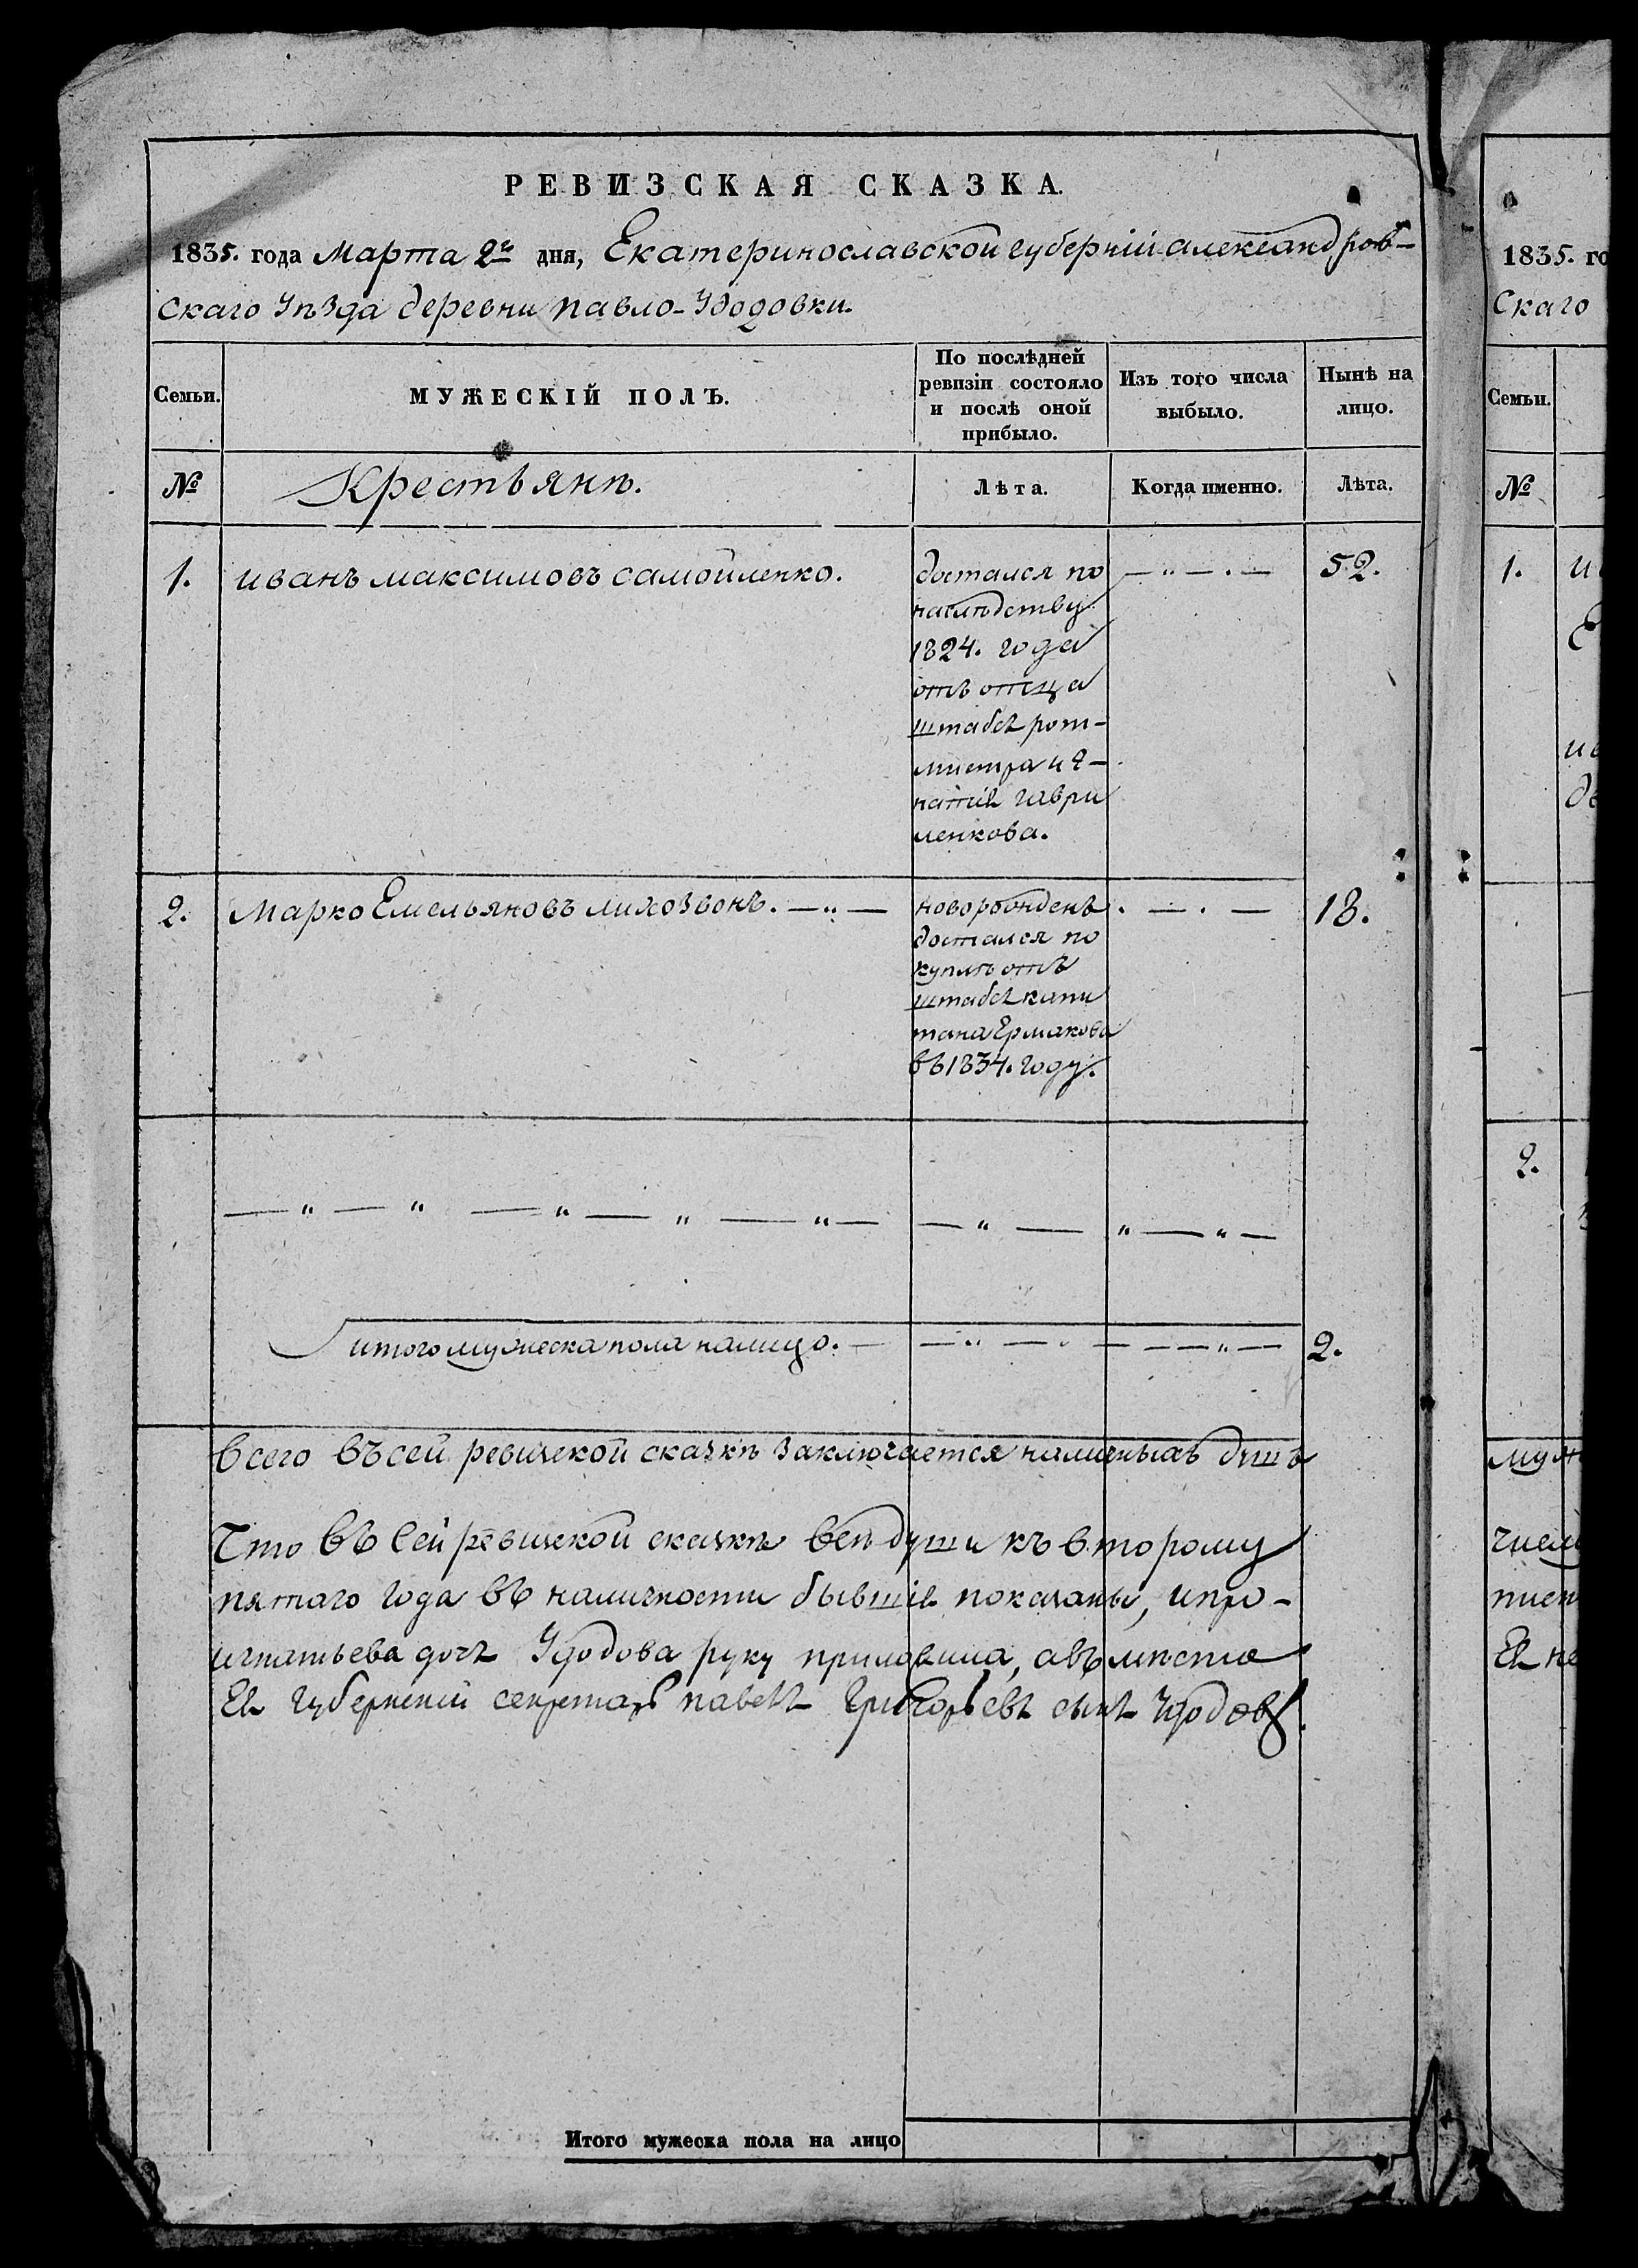 РЕВИЗСКАЯ СКАЗКА.
1835. года Марта 2го дня, Екатеринославской губерніи александров-
скаго уѣзда деревни павло-Удодовки.
Семьи.
МУЖЕСКІЙ ПОЛЪ.
По послѣдней
ревизіи состояло
и послѣ оной
прибыло.
Изъ того числа
выбыло.
Нынѣ на
лицо.
№
Крестьянѣ.
Лѣта.
Когда именно.
Лѣта.
1.
иванъ максимовъ самойленко.
достался по
наслѣдству
1824. года
отъ отца
штабсъ рот-
мистра иг-
натія гаври
ленкова.
— " — . —
52.
2.
Марко Емельяновъ лихозвонъ. — " —
новорожденъ
достался по
куплѣ отъ
штабсъ капи
тана Ермакова
въ 1834. году.
. — . —
18.
— " — " — " — " — " — — " — " — " —
итого мужеска пола налицо. — — " — " — — — " — 2.
всего въ сей ревизской сказкѣ заключается наличныхъ душъ
Что въ сей ревизской сказкѣ всѣ души къ второму
пятаго года въ наличности бывшія показаны, ипро-
игнатьева дочь Удодова руку приложила, авъмѣсто
Ея губернскій секретарь павелъ Григорьевъ сынъ Удодовъ.
Итого мужеска пола на лицо
1835. го
скаго
Семьи.
№
1.
2.
муж
числ
пист
Ея не